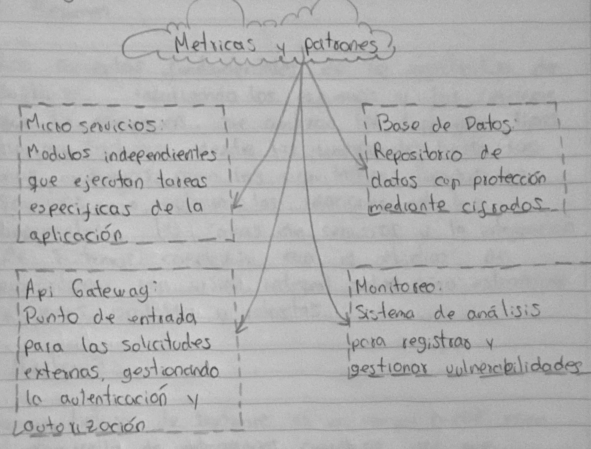 Metricas y patrones
Micro servicios:
Modulos independientes
que ejecutan tareas
especificas de la
aplicación
Base de Datos:
Repositorio de
datos con protección
mediante cifrados
Api Gateway:
Punto de entrada
para las solicitudes
externas, gestionando
la autenticación y
autorización
Monitoreo:
Sistema de análisis
para registrar y
gestionar vulnerabilidades